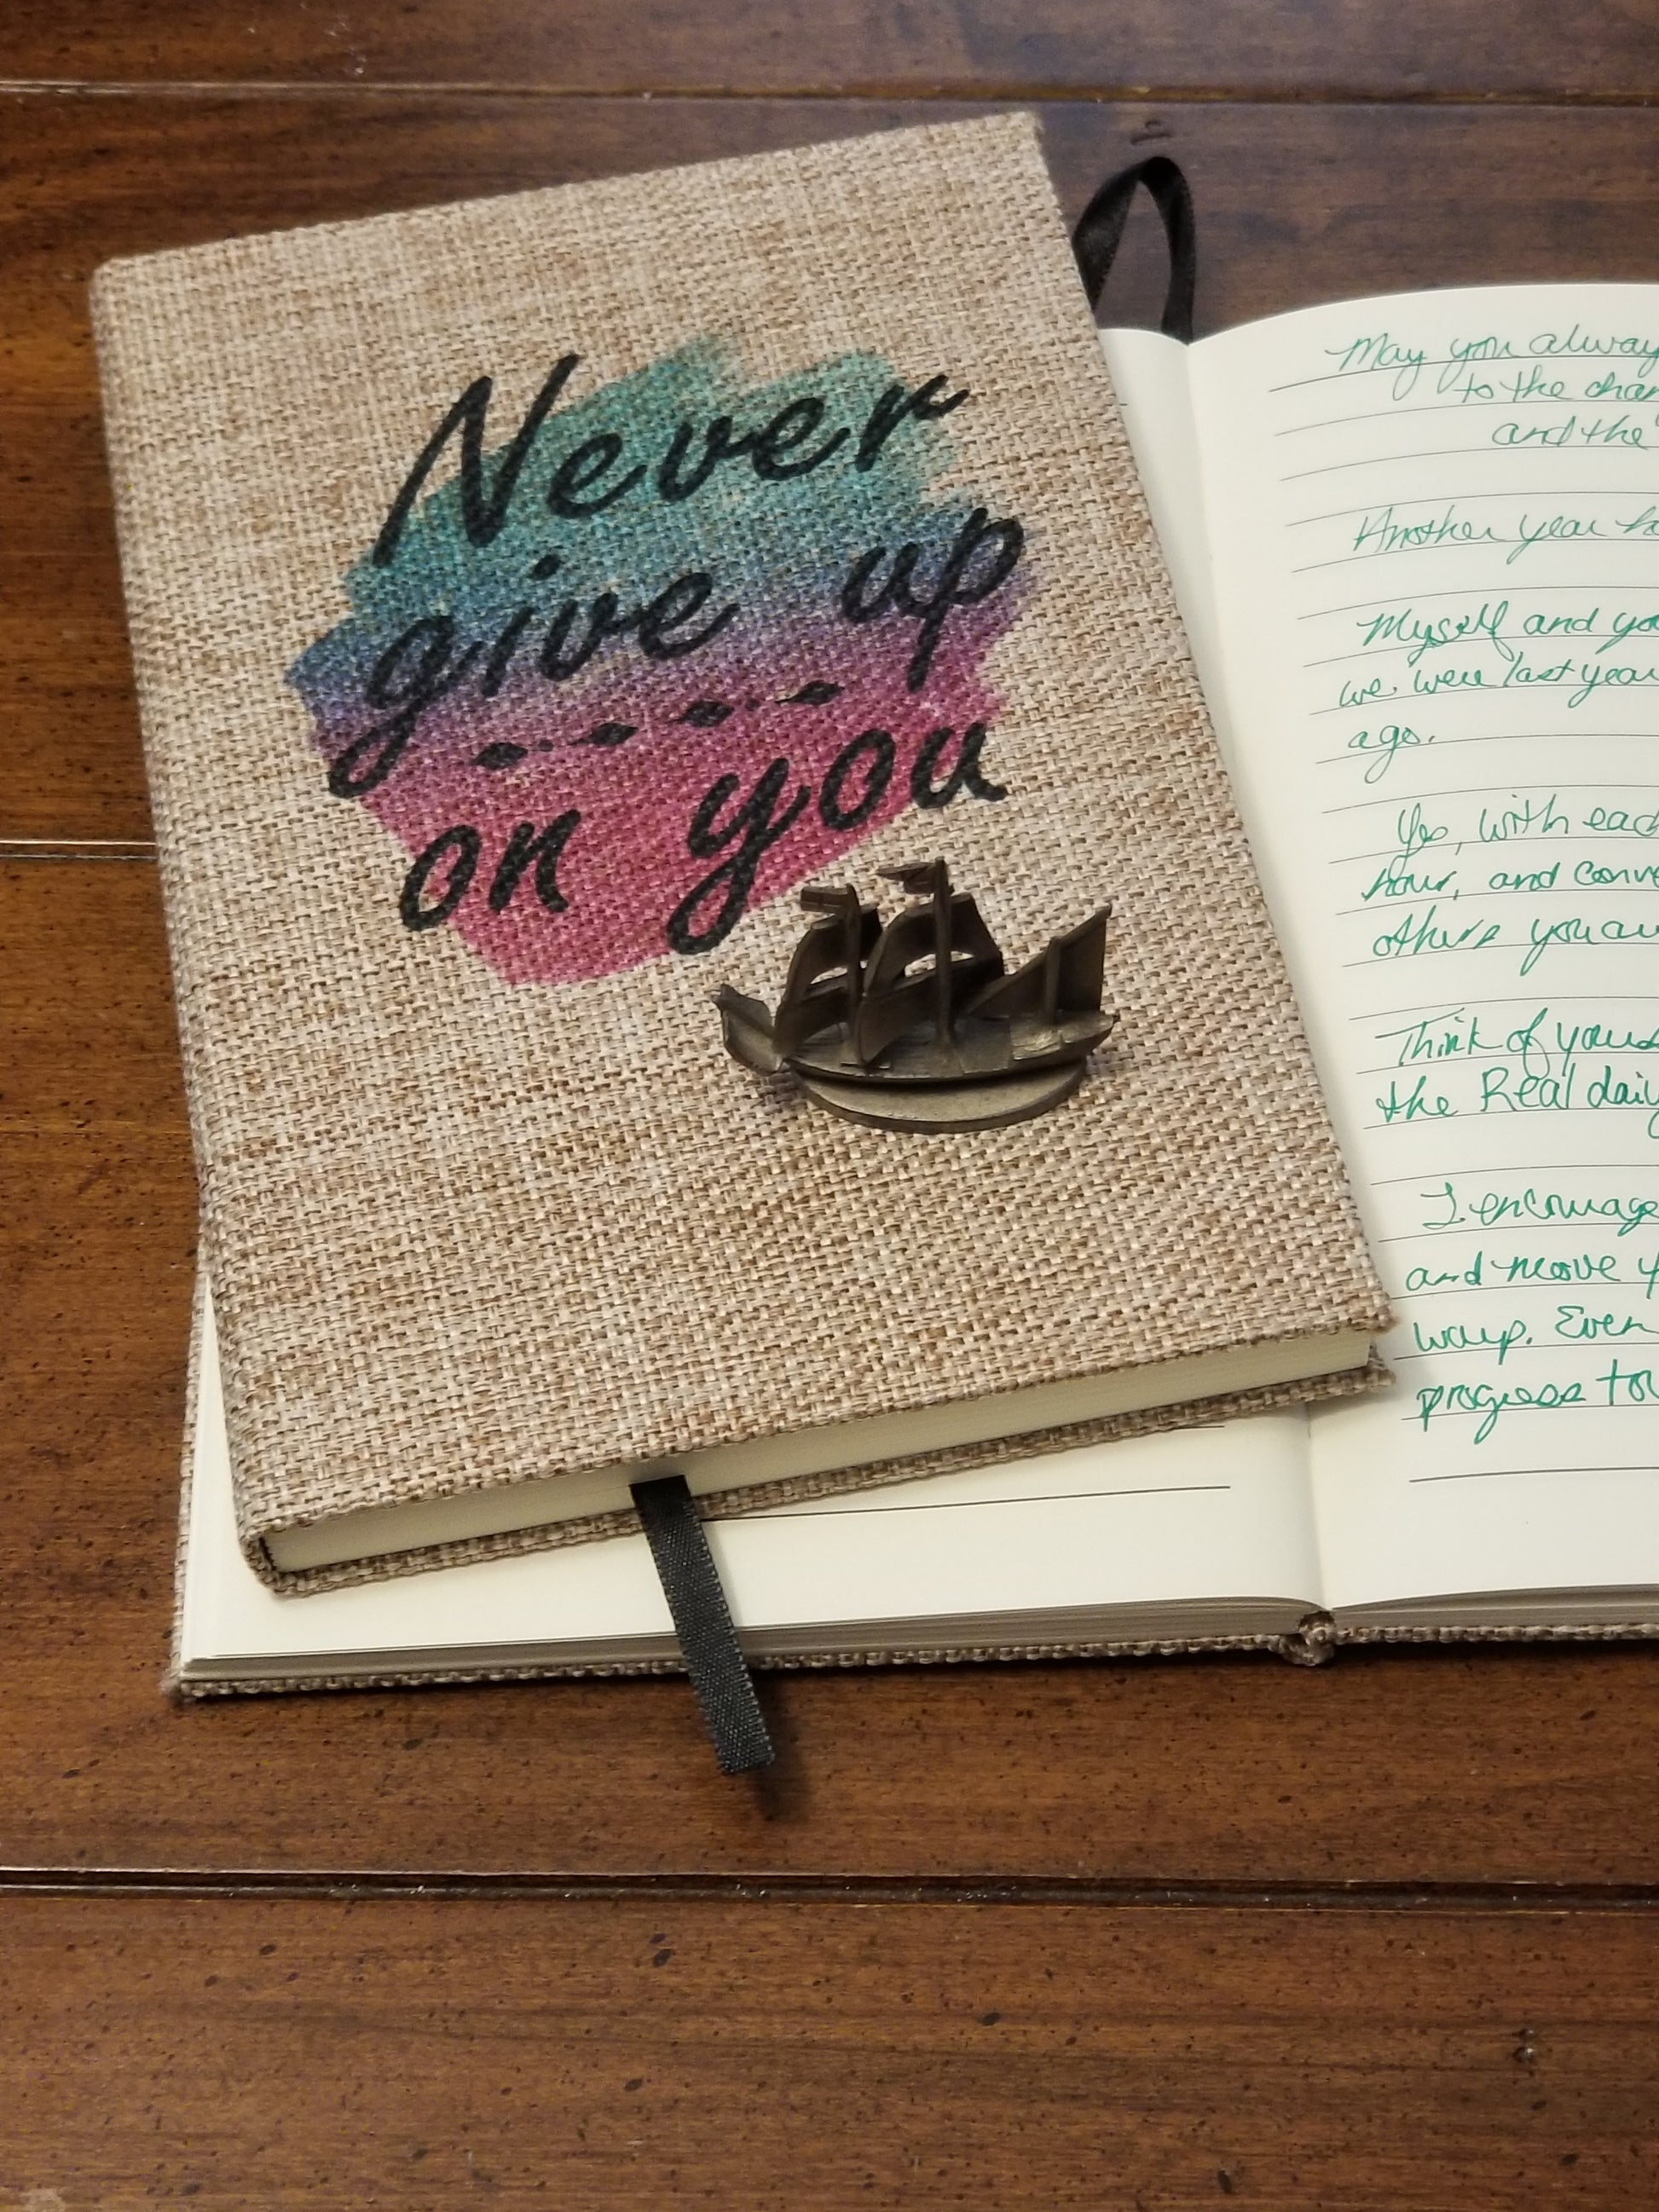 Never
give up
on you
May you alway
to the chan
and the
Another year ha
Myself and you
we were last year
ago.
Yes, with each
hour, and conve
others you au
Think of yours
the Real daily
I encourage
and move y
way. Even
progress tow